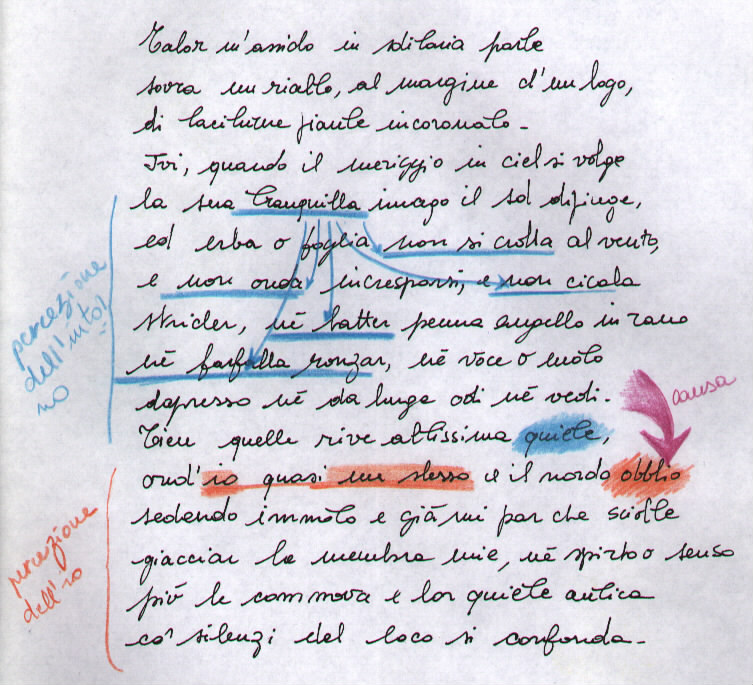 Talor m'assido in solitaria parte
sovra un rialto, al margine d'un lago,
di taciturne piante incoronato.
Ivi, quando il meriggio in ciel si volge
la sua tranquilla imago il sol dipinge,
ed erba o foglia non si crolla al vento,
e non onda incresparsi, e non cicala
strider, nè batter penna augello in ramo
nè farfalla ronzar, nè voce o moto
dapresso nè da lunge odi nè vedi.
Tien quelle rive altissima quiete,
ond'io quasi me stesso e il mondo obblio
sedendo immoto e già mi par che sciolte
giaccian le membra mie, nè spirto o senso
più le commova e lor quiete antica
co' silenzi del loco si confonda.
percezione
dell'into
no
causa
percezione
dell'io